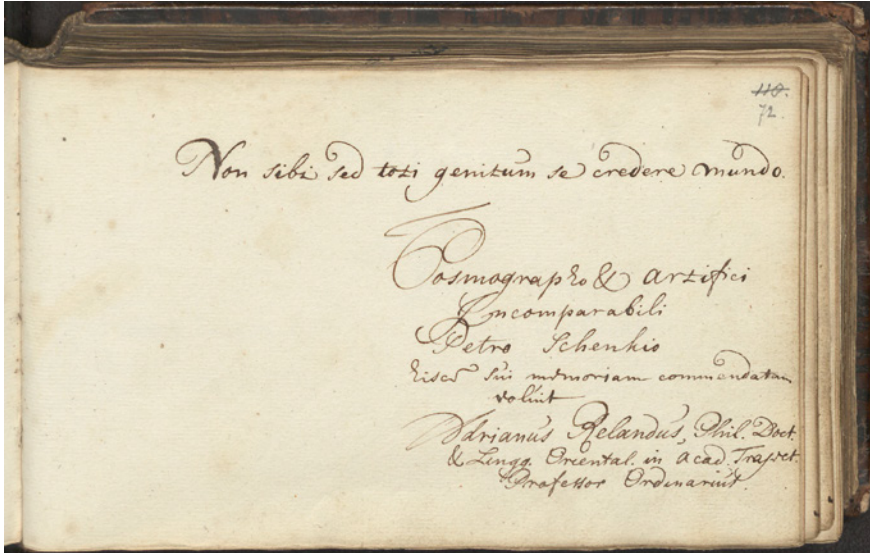 118.
72.
Non sibi sed toti genitum se credere mundo.
Cosmographo & artifici
Incomparabili
Petro Schenkio
hisce sui memoriam commendatam
voluit
Adrianus Relandus, Phil. Doct.
& Lingg. Oriental. in Acad. Traject.
Professor Ordinarius.